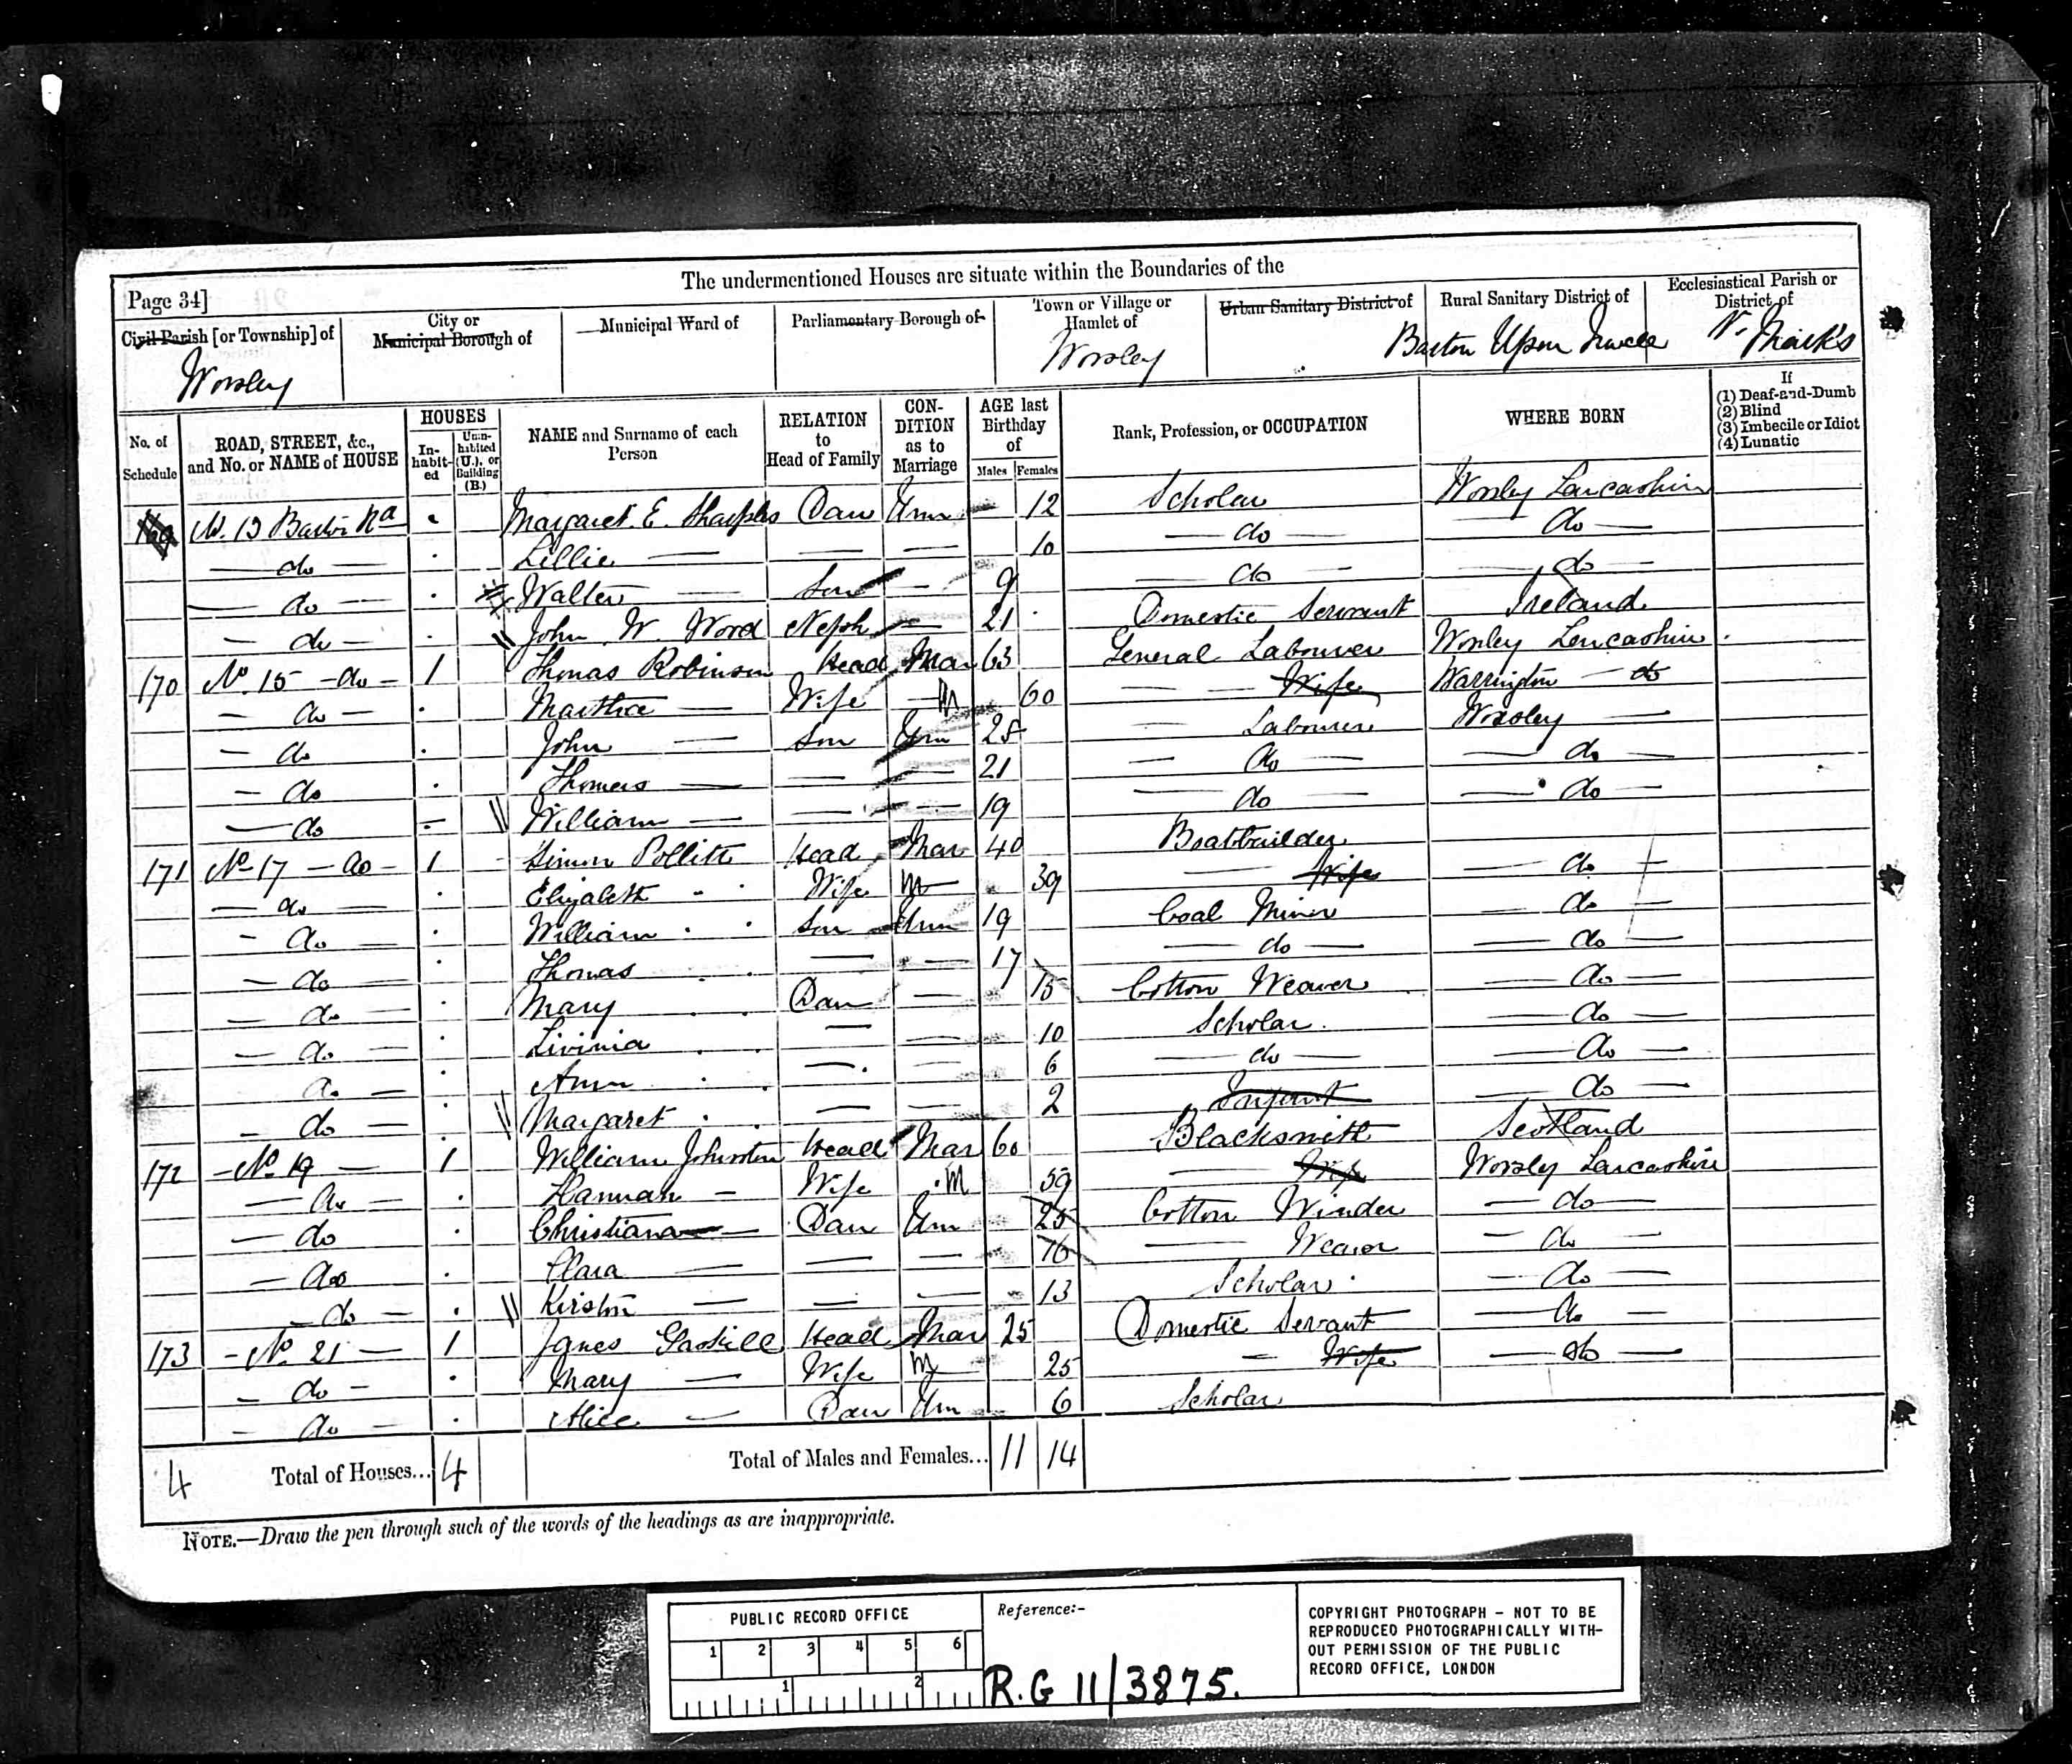 The undermentioned Houses are situate within the Boundaries of the
Page 34]
Civil Parish [or Township] of
City or Municipal Borough of
Municipal Ward of
Parliamentary Borough of
Town or Village or Hamlet of
Urban Sanitary District of
Rural Sanitary District of
Ecclesiastical Parish or District of
Worsley Worsley Barton Upon Irwell St. Mark's
No. of Schedule
ROAD, STREET, &c., and No. or NAME of HOUSE
HOUSES
Inhabited
Uninhabited (U.), or Building (B.)
NAME and Surname of each Person
RELATION to Head of Family
CONDITION as to Marriage
AGE last Birthday of
Males Females
Rank, Profession, or OCCUPATION
WHERE BORN
If
(1) Deaf-and-Dumb
(2) Blind
(3) Imbecile or Idiot
(4) Lunatic
169 No. 13 Barton Rd Margaret. E. Sharples Dau Unm 12 Scholar Worsley Lancashire
do Lillie — — — 10 do do
do Walter — Son — 9 do do
do John W. Word Neph — 21 Domestic Servant Ireland
170 No. 15 do 1 Thomas Robinson Head Mar 63 General Labourer Worsley Lancashire
do Martha — Wife M 60 Wife Warrington do
do John — Son Unm 25 Labourer Worsley —
do Thomas — — — 21 do do
do William — — — 19 do do
171 No 17 do 1 Simon Pollitt Head Mar 40 Boatbuilder
do Elizabeth Wife M 39 Wife do
do William Son Unm 19 Coal Miner do
do Thomas — — 17 do do
do Mary Dau — 15 Cotton Weaver do
do Livinia — — 10 Scholar do
do Ann — — 6 do do
do Margaret — — 2 Infant do
172 No. 19 — 1 William Johnston Head Mar 60 Blacksmith Scotland
do Hannah — Wife M 59 Wife Worsley Lancashire
do Christiana — Dau Unm 25 Cotton Winder do
do Clara — — — 16 Weaver do
do — — — 13 Scholar do
173 No. 21 — 1 James Gaskell Head Mar 25 Domestic Servant do
do Mary — Wife M 25 Wife do
do Alice — Dau Unm 6 Scholar
4 Total of Houses... 4 Total of Males and Females... 11 14
NOTE.—Draw the pen through such of the words of the headings as are inappropriate.
PUBLIC RECORD OFFICE
1 2 3 4 5 6
1 2
Reference:-
R.G 11/3875.
COPYRIGHT PHOTOGRAPH - NOT TO BE
REPRODUCED PHOTOGRAPHICALLY WITH-
OUT PERMISSION OF THE PUBLIC
RECORD OFFICE, LONDON